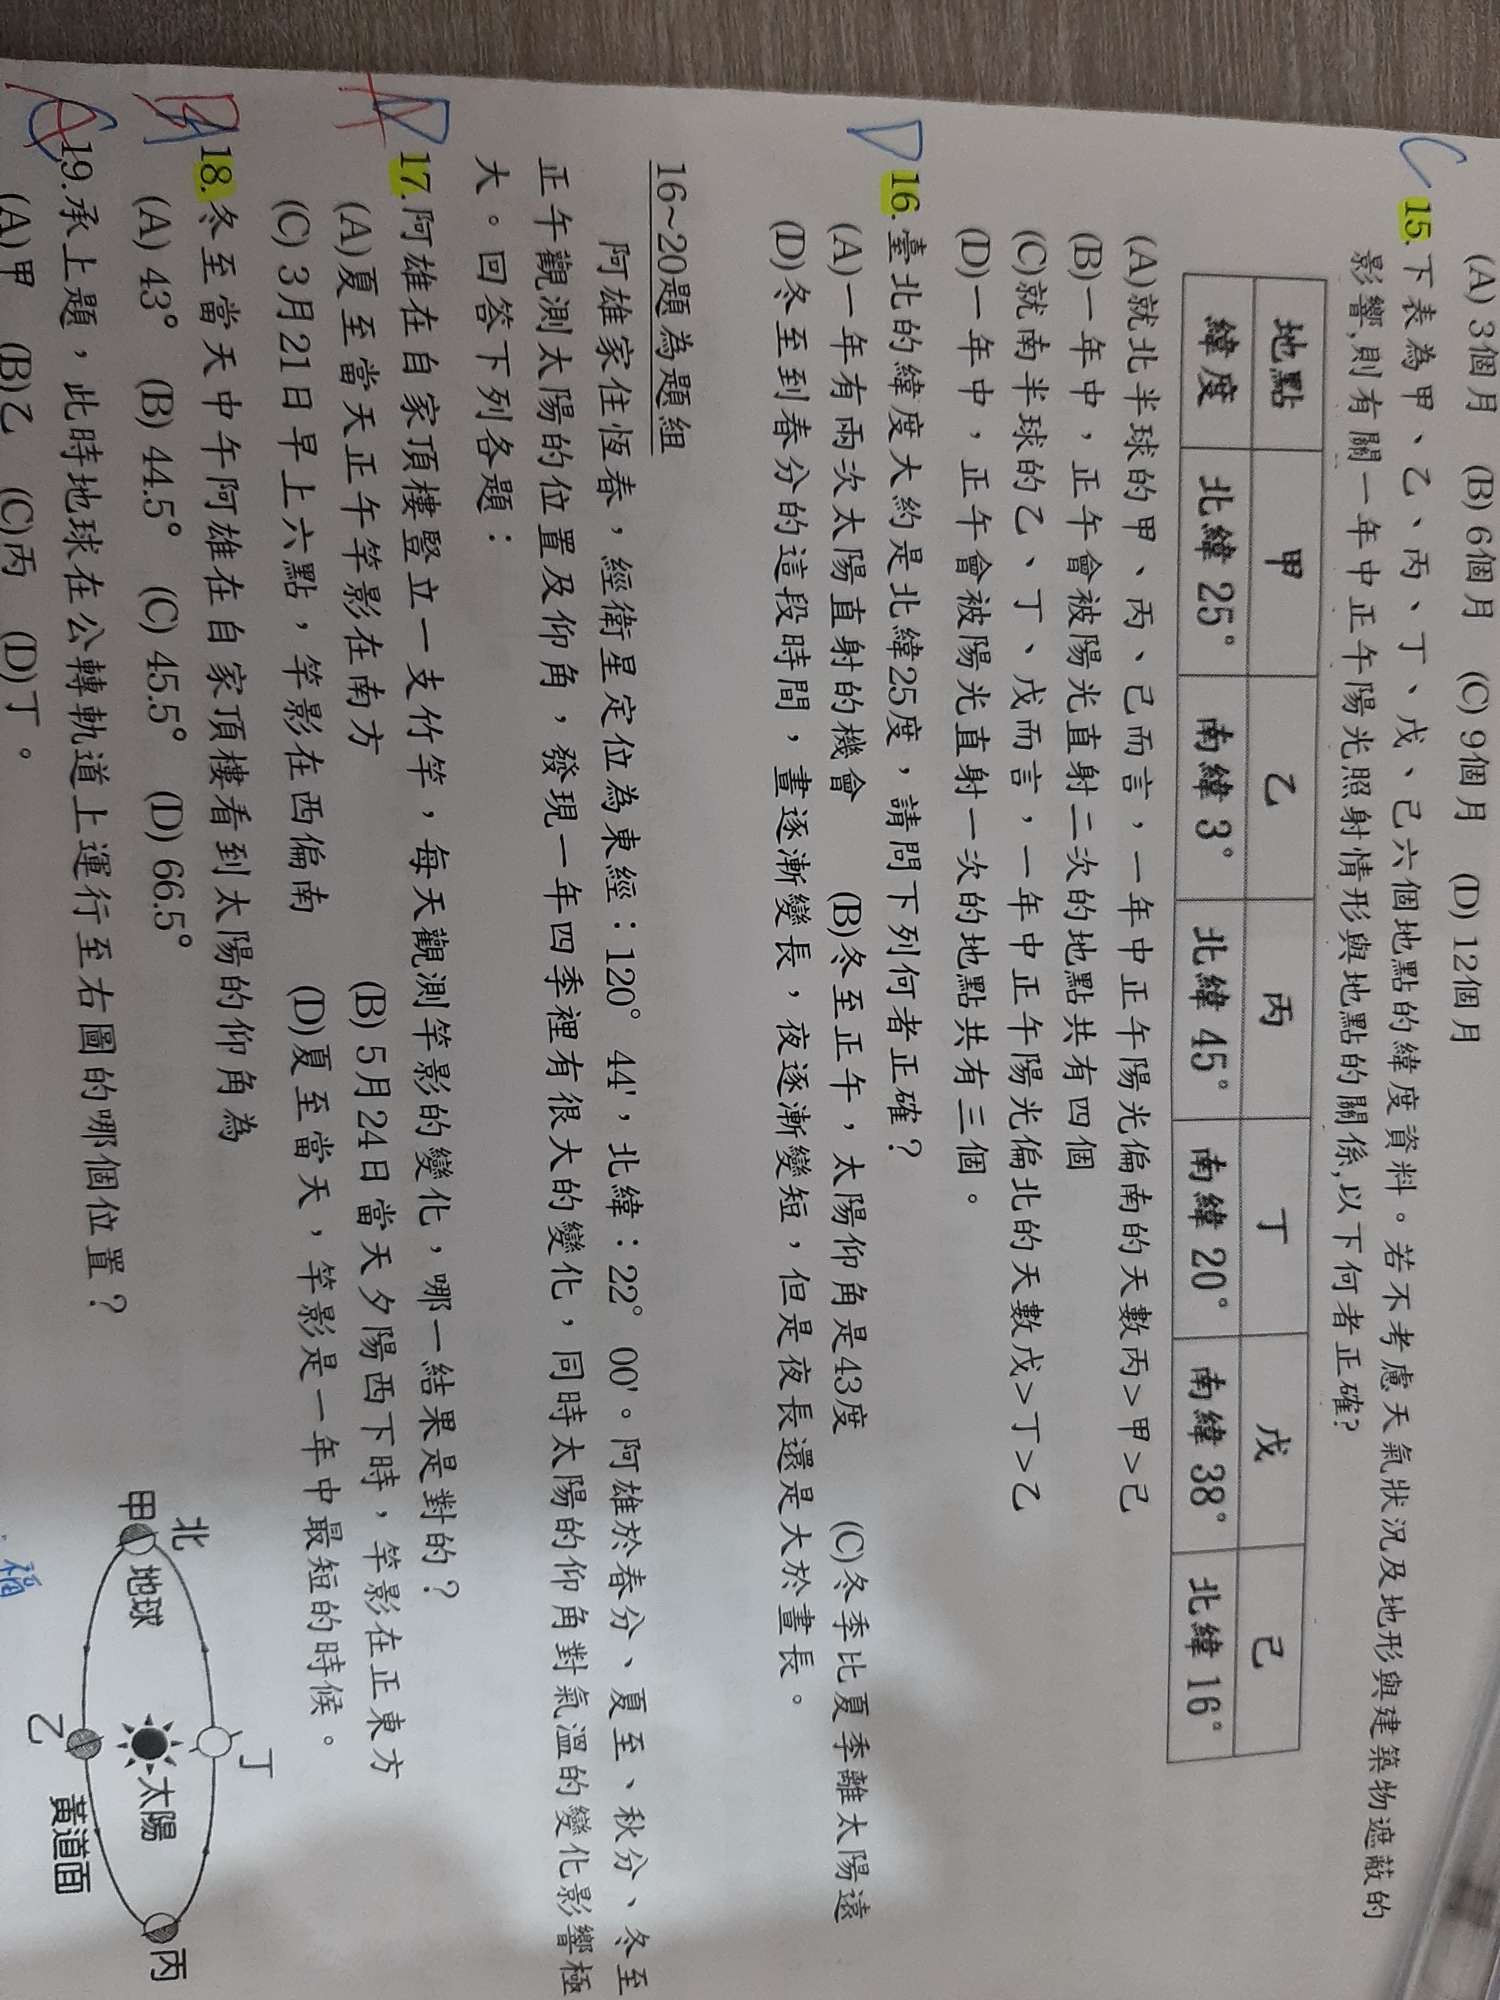 (A) 3個月 (B) 6個月 (C) 9個月 (D) 12個月
C 15.下表為甲、乙、丙、丁、戊、己六個地點的緯度資料。若不考慮天氣狀況及地形與建築物遮蔽的
影響,則有關一年中正午陽光照射情形與地點的關係,以下何者正確?
地點 甲 乙 丙 丁 戊 己
緯度 北緯 25° 南緯 3° 北緯 45° 南緯 20° 南緯 38° 北緯 16°
(A)就北半球的甲、丙、己而言，一年中正午陽光偏南的天數丙>甲>己
(B)一年中，正午會被陽光直射二次的地點共有四個
(C)就南半球的乙、丁、戊而言，一年中正午陽光偏北的天數戊>丁>乙
(D)一年中，正午會被陽光直射一次的地點共有三個。
D 16.臺北的緯度大約是北緯25度，請問下列何者正確？
(A)一年有兩次太陽直射的機會 (B)冬至正午，太陽仰角是43度 (C)冬季比夏季離太陽遠
(D)冬至到春分的這段時間，晝逐漸變長，夜逐漸變短，但是夜長還是大於晝長。
16~20題為題組
阿雄家住恆春，經衛星定位為東經：120° 44'，北緯：22° 00'。阿雄於春分、夏至、秋分、冬至
正午觀測太陽的位置及仰角，發現一年四季裡有很大的變化，同時太陽的仰角對氣溫的變化影響極
大。回答下列各題：
17.阿雄在自家頂樓豎立一支竹竿，每天觀測竿影的變化，哪一結果是對的？
(A)夏至當天正午竿影在南方 (B) 5月24日當天夕陽西下時，竿影在正東方
(C) 3月21日早上六點，竿影在西偏南 (D)夏至當天，竿影是一年中最短的時候。
18.冬至當天中午阿雄在自家頂樓看到太陽的仰角為
(A) 43° (B) 44.5° (C) 45.5° (D) 66.5°
19.承上題，此時地球在公轉軌道上運行至右圖的哪個位置？
(A)甲 (B)乙 (C)丙 (D)丁。
北
丁
甲
地球
太陽
丙
乙
黃道面